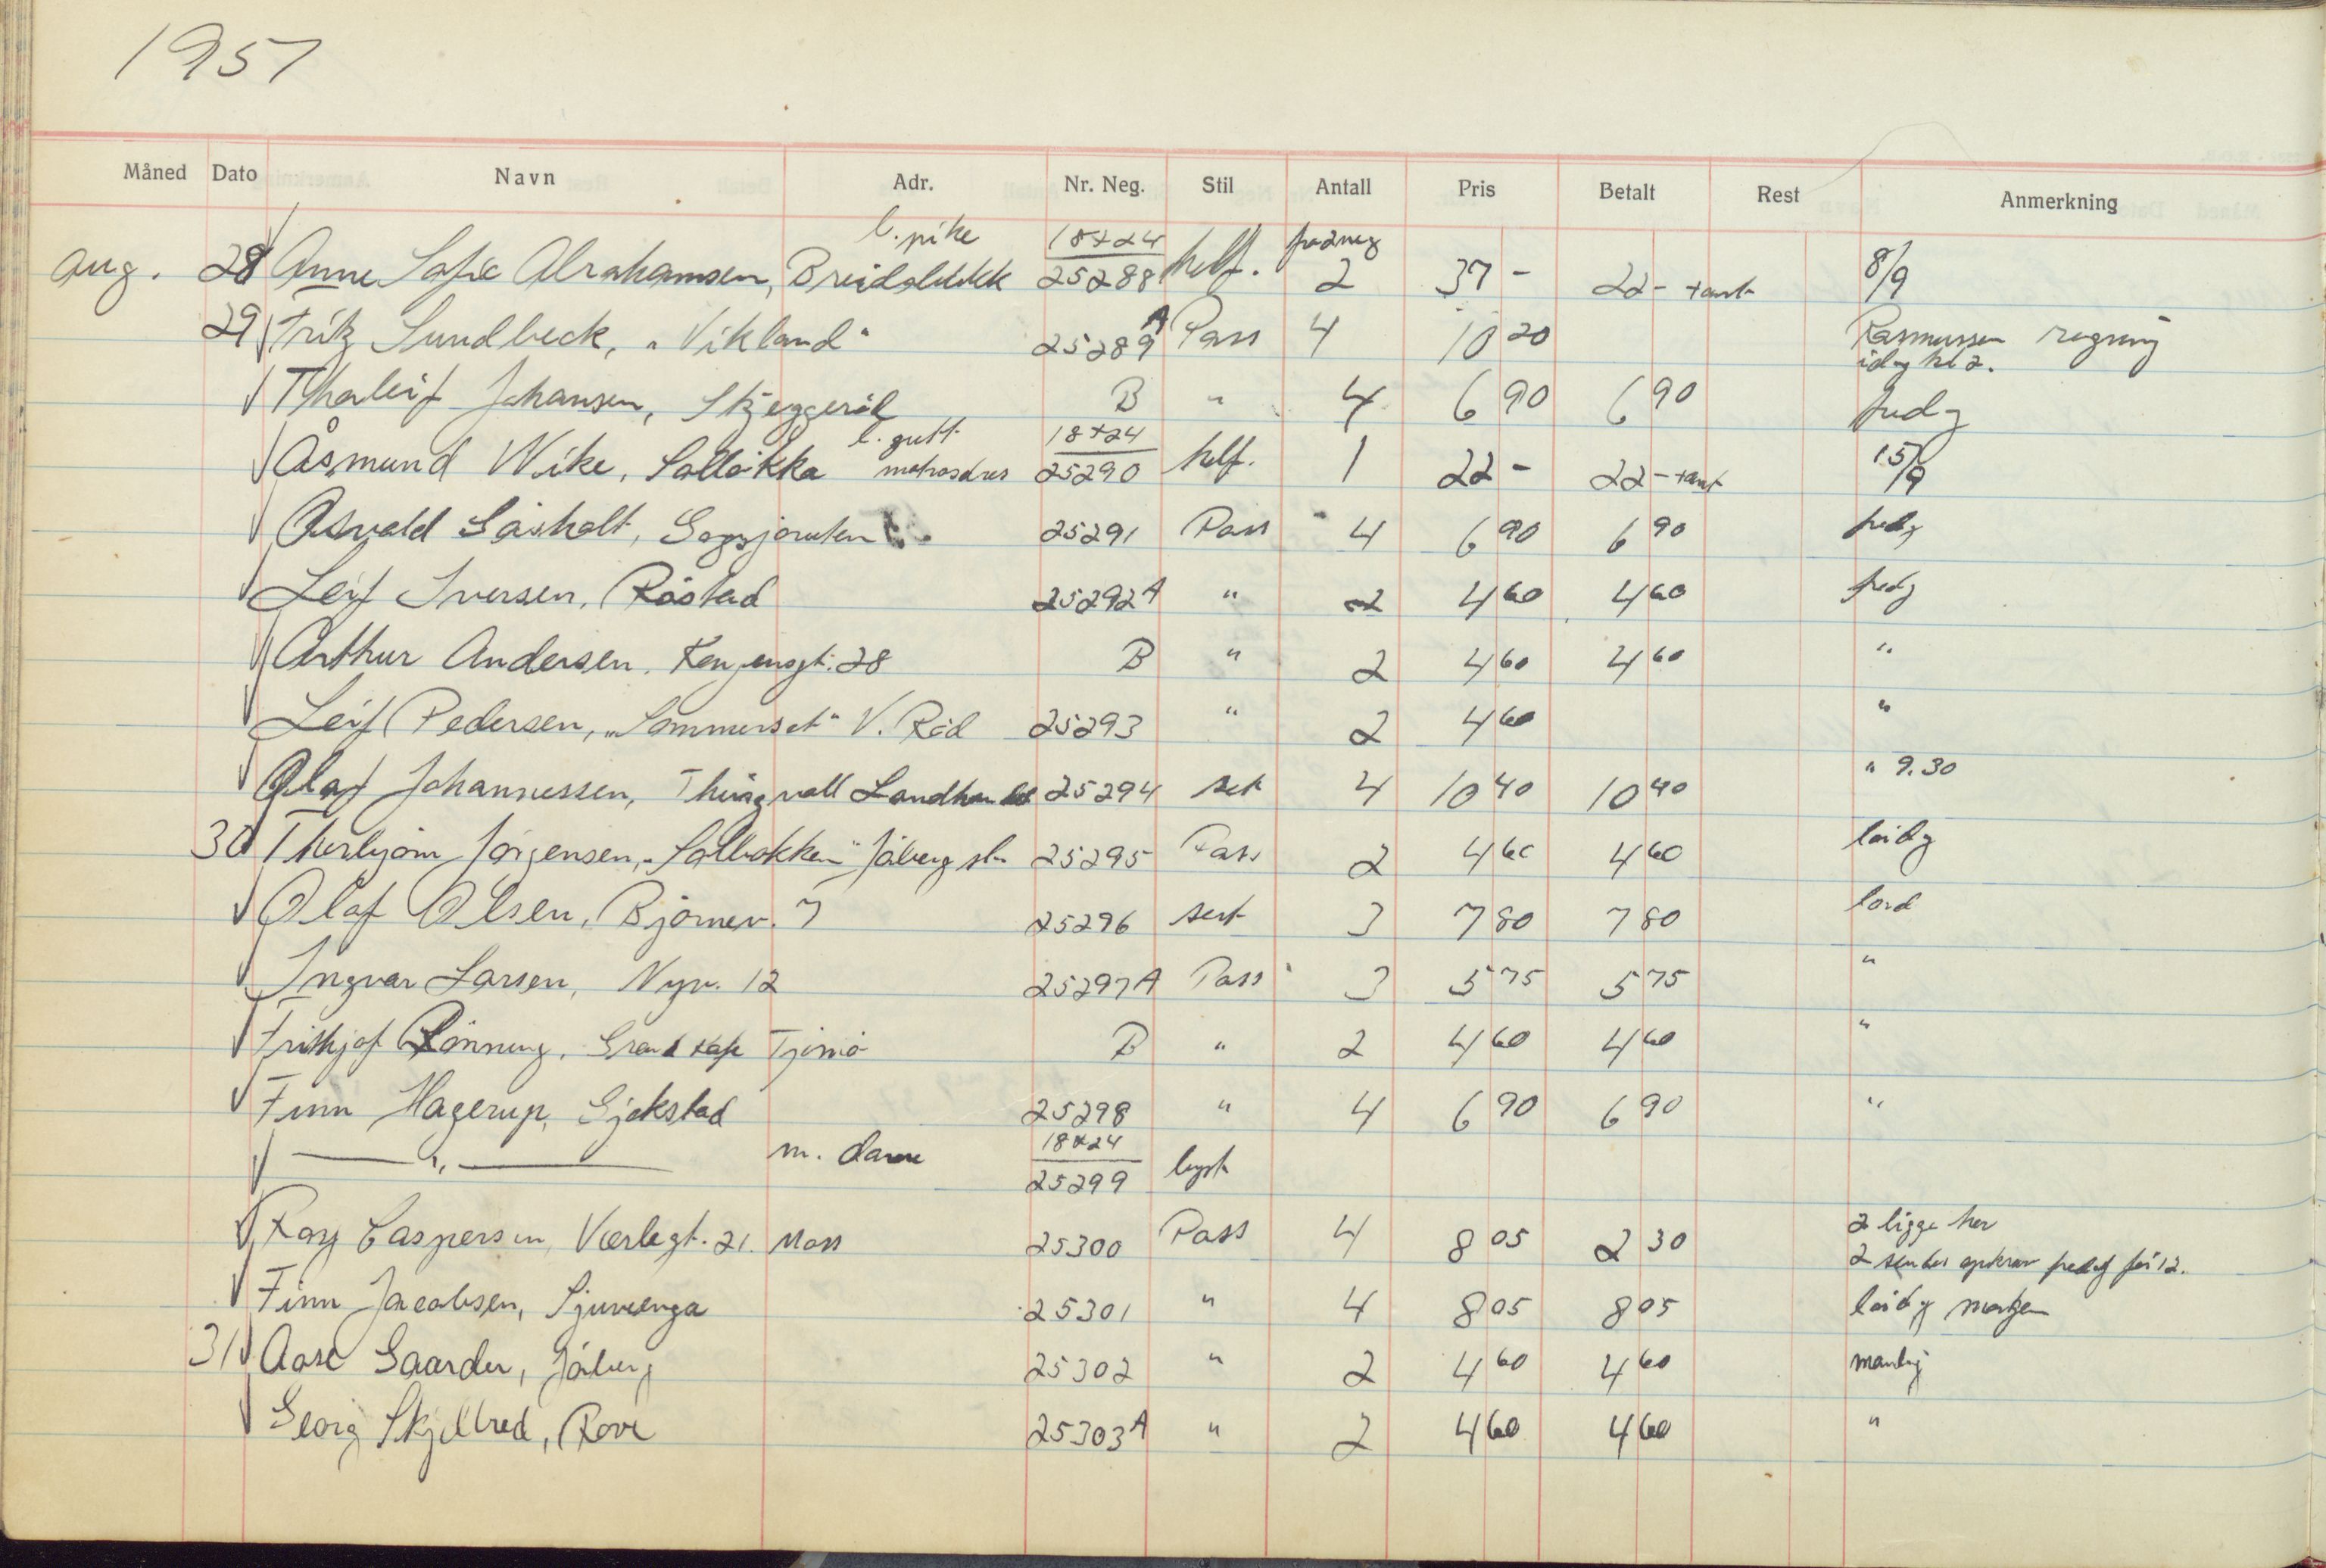 1957
Måned Dato Navn Adr. Nr. Neg. Stil Antall Pris Betalt Rest Anmerkning
l. pike 18x24
Aug. 28 Anne Sofie Abrahamsen, Breidablikk 25288 helf. 2 37 - 22 - + takst 8/9
29 Fritz Sundbeck, "Vikland" 25289 A Pass 4 10 20 Rasmussen regning
idag kl 2.
Thorleif Johansen, Skjeggerød B " 4 6 90 6 90 fredg
l. gutt 18x24
Åsmund Wike, Solløkka matrosdres 25290 helf. 1 22 - 22 - 15/9
Osvald Gåsholt, 25291 Pass 4 6 90 6 90 fredg
Leif Iversen, Råstad 25292 A " 2 4 60 4 60 fredg
Arthur Andersen, 28 B " 2 4 60 4 60 "
Leif Pedersen, "Sommerset" V. Råd 25293 " 2 4 60 "
Olaf Johannessen, Thingvall Landhandel 25294 sert 4 10 40 10 40 " 9.30
30 Thorbjørn Jørgensen, "Solbakken" Jåberg st. 25295 Pass 2 4 60 4 60 lørdg
Olaf Olsen, Bjørnev. 7 25296 sert 3 7 80 7 80 lørd
Ingvar Larsen, Nyv. 12 25297 A Pass 3 5 75 5 75 "
Frithjof Rønning, Grand Kafe Tjømø B " 2 4 60 4 60 "
Finn Hagerup, Gjekstad 25298 " 4 6 90 6 90 "
18x24
— " — m. dame 25299 byst
Roy Caspersen, Værlegt. 21. Moss 25300 Pass 4 8 05 2 30 2 ligge her
2 sendes opkrav fredag før 12.
Finn Jacobsen, Sjuveenga 25301 " 4 8 05 8 05 lørdg morgen
31 Aase Gaarder, Jåberg 25302 " 2 4 60 4 60 mandg
Georg Skjelbred, Rove 25303 A " 2 4 60 4 60 "